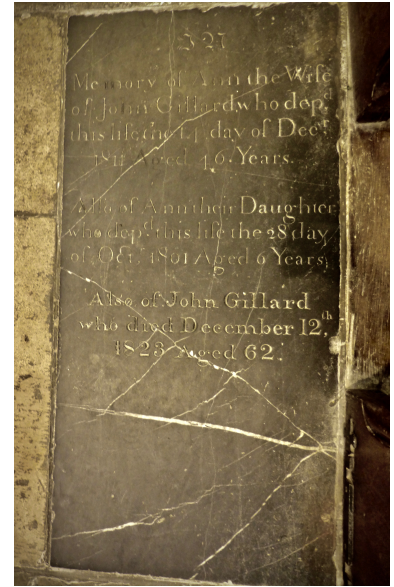 In
Memory of Ann the Wife
of John Gillard, who dep.d
this life the 14 day of Decr.
1811 Aged 46 Years.
Also of Ann their Daughter
who dep.d this life the 28 day
of Octr. 1801 Aged 6 Years,
Also of John Gillard
who died December 12th,
1823 Aged 62.